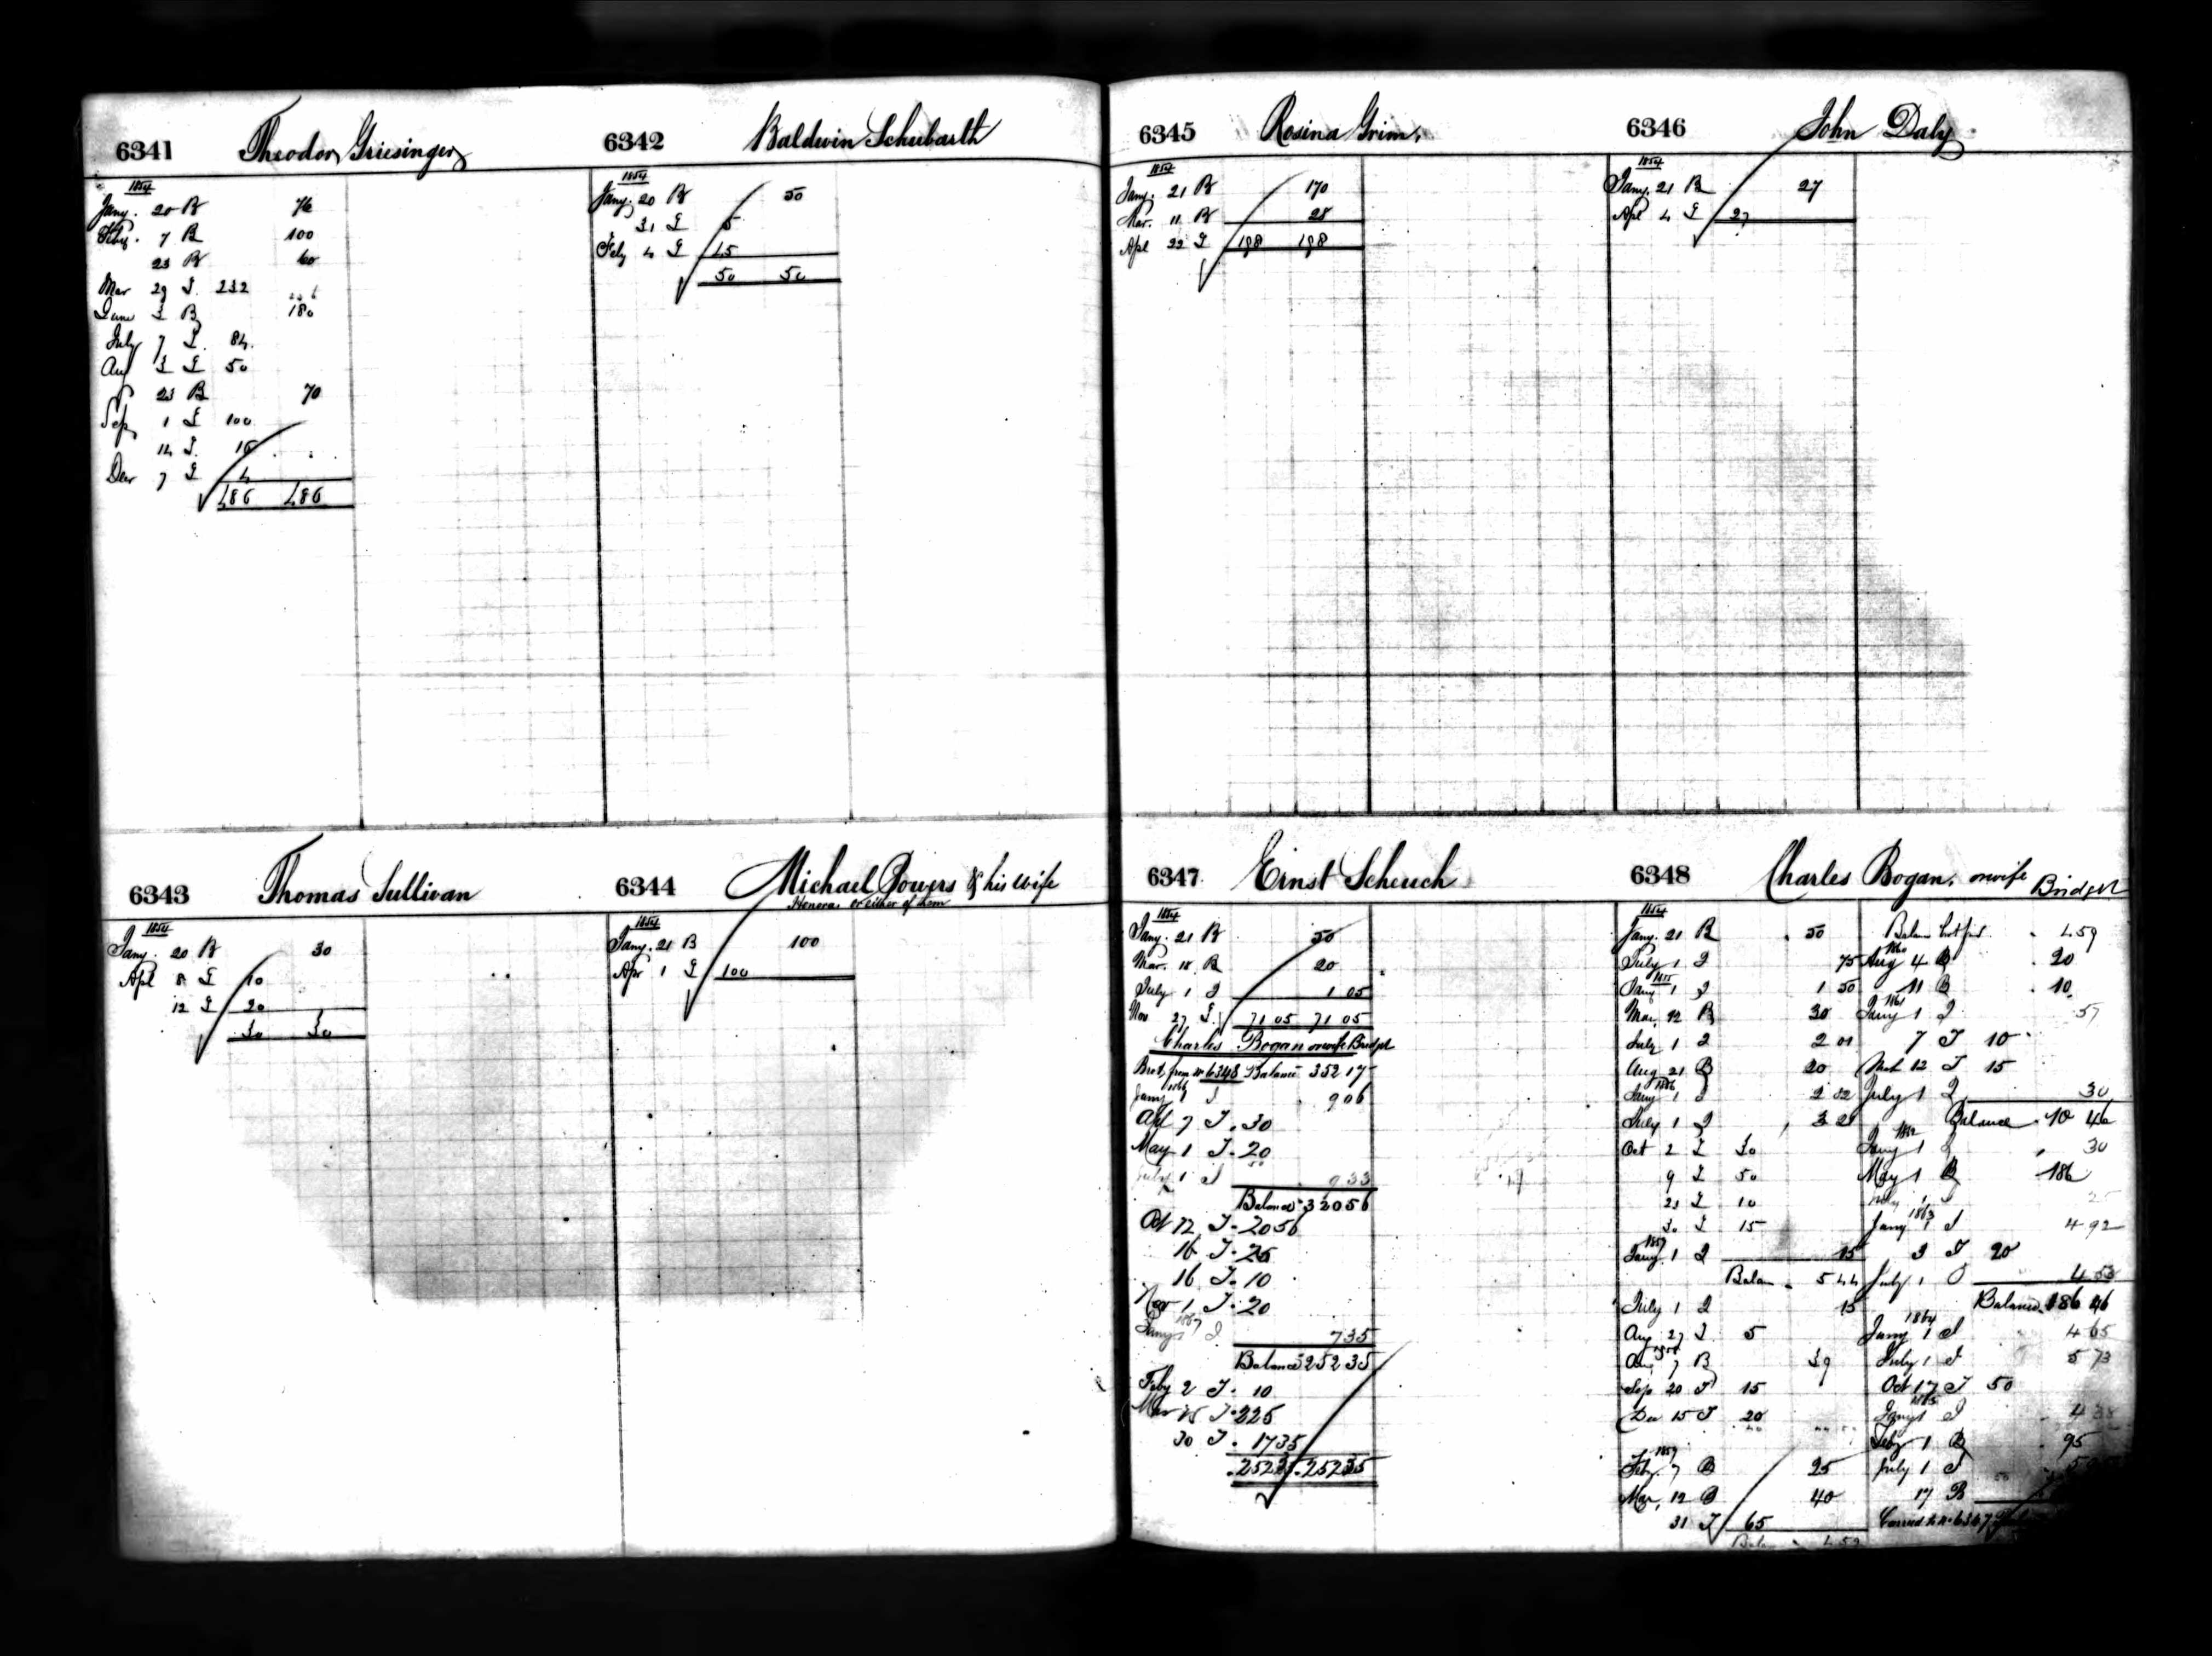 6341 Theodor Griesinger
1854
Jany. 20 B 76
Feby. 7 B 100
23 B 60
Mar 29 I. 232
236
June 3 B 180
July 7 I. 84.
Aug 3 I 50
23 B 70
Sep 1 I 100
14 I. 16
Decr 7 I 4
486 486
6342 Baldwin Schubarth
1854
Jany. 20 B 50
31 I 5
Feby 4 I 45
50 50
6343 Thomas Sullivan
1854
Jany. 20 B 30
Apl 8 I 10
12 I 20
30 30
6344 Michael Powers & his wife
Honora, or either of them
1854
Jany. 21 B 100
Apr 1 I 100
6345 Rosina Grim.
1854
Jany. 21 B 170
Mar. 11 B 28
Apl 22 I 198 198
6346 John Daly
1854
Jany. 21 B 27
Apl 4 I 27
6347 Ernst Scheuch
1854
Jany. 21 B 50
Mar. 18 B 20
July 1 I 1 05
Nov 27 I. 71 05 71 05
Charles Bogan or wife Bridget
Brot. from No 6348 Balance 352 17
1866
Jany 1 I 9 06
Apl 7 I. 30
May 1 I. 20
July 1 I 9 33
Balance 320 56
Oct 12 I. 20 56
16 I. 25
16 I. 10
Nov 1 I. 20
1867
Jany 1 I 7 35
Balance 252 35
Feby 2 I. 10
Mar 15 I. 225
30 I. 17 35
252 35 . 252 35
6348 Charles Bogan. or wife Bridget
1854
Jany. 21 B 50
July 1 I 75
1855
Jany 1 I 1 50
Mar. 12 B 30
July 1 I 2 01
Aug 21 B 20
1856
Jany 1 I 2 82
July 1 I
Oct 2 I 30
9 I 50
23 I 10
30 I 15
1857
Jany. 1 I 15
Balan . 5 44
July 1 I 15
Aug 27 I 5
7 B 39
Sep 20 I 15
Dec 15 I 20
1859
Feby. 7 B 25
Mar. 12 B 40
31 I 65
Balan . 4 59
Balan 4 59
1860
Aug 4 B 20
11 B 10
1861
Jany 1 I 57
7 I 10
Mch 12 I 15
July 1 I 30
Balance 10 46
1862
Jany 1 I 30
May 1 B 186
July 1 I 25
1863
Jany 1 I 4 92
3 I 20
July 1 I 4 53
Balance 186 46
1864
Jany 1 I 4 65
July 1 I 5 73
Oct 17 I 50
1865
Jany 1 I 4 38
Feby 1 B 95
July 1 I
17 B
Carried to No 6347